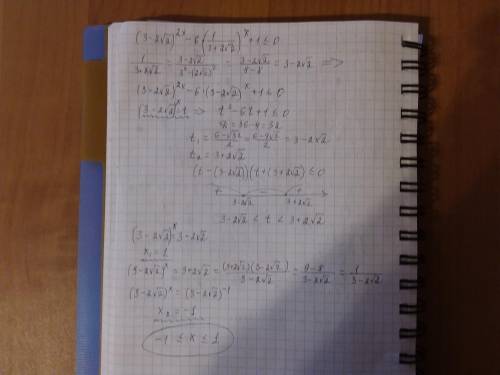 (3-2√2)^{2x} - 6·(1/(3+2√2))^x + 1 ≤ 0
1/(3+2√2) = (3-2√2)/(3²-(2√2)²) = (3-2√2)/(9-8) = 3-2√2 ⟹
(3-2√2)^{2x} - 6·(3-2√2)^x + 1 ≤ 0
(3-2√2)^x = t ⟹ t² - 6t + 1 ≤ 0
D = 36-4 = 32
t₁ = (6-√32)/2 = (6-4√2)/2 = 3-2√2
t₂ = 3+2√2
(t-(3-2√2))(t+(3+2√2)) ≤ 0
+ - +
3-2√2 3+2√2
3-2√2 ≤ t ≤ 3+2√2
(3-2√2)^x = 3-2√2
x₁ = 1
(3-2√2)^x = 3+2√2 = ((3+2√2)(3-2√2))/(3-2√2) = (9-8)/(3-2√2) = 1/(3-2√2)
(3-2√2)^x = (3-2√2)^{-1}
x₂ = -1
-1 ≤ x ≤ 1